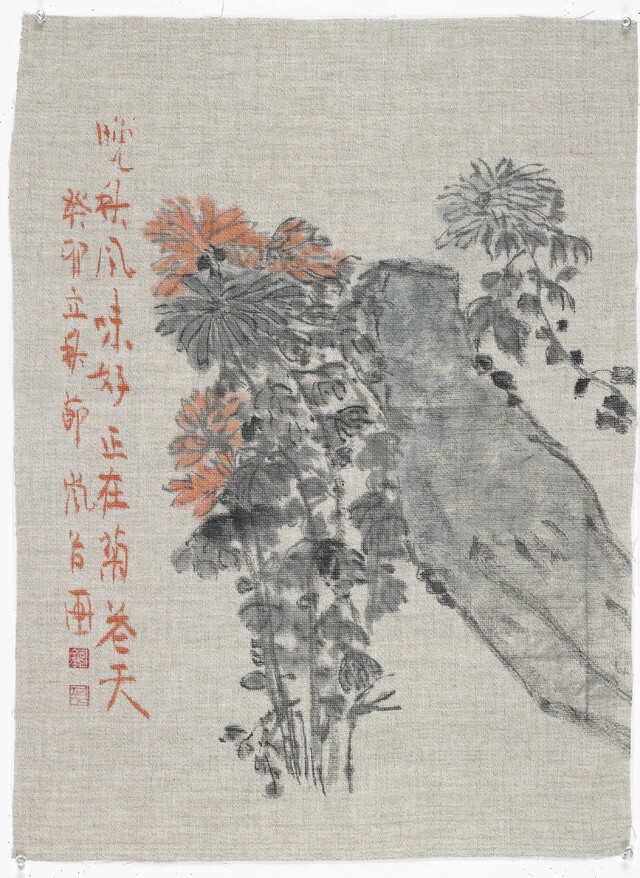 晚秋风味好正在菊花天
癸卯立秋節画